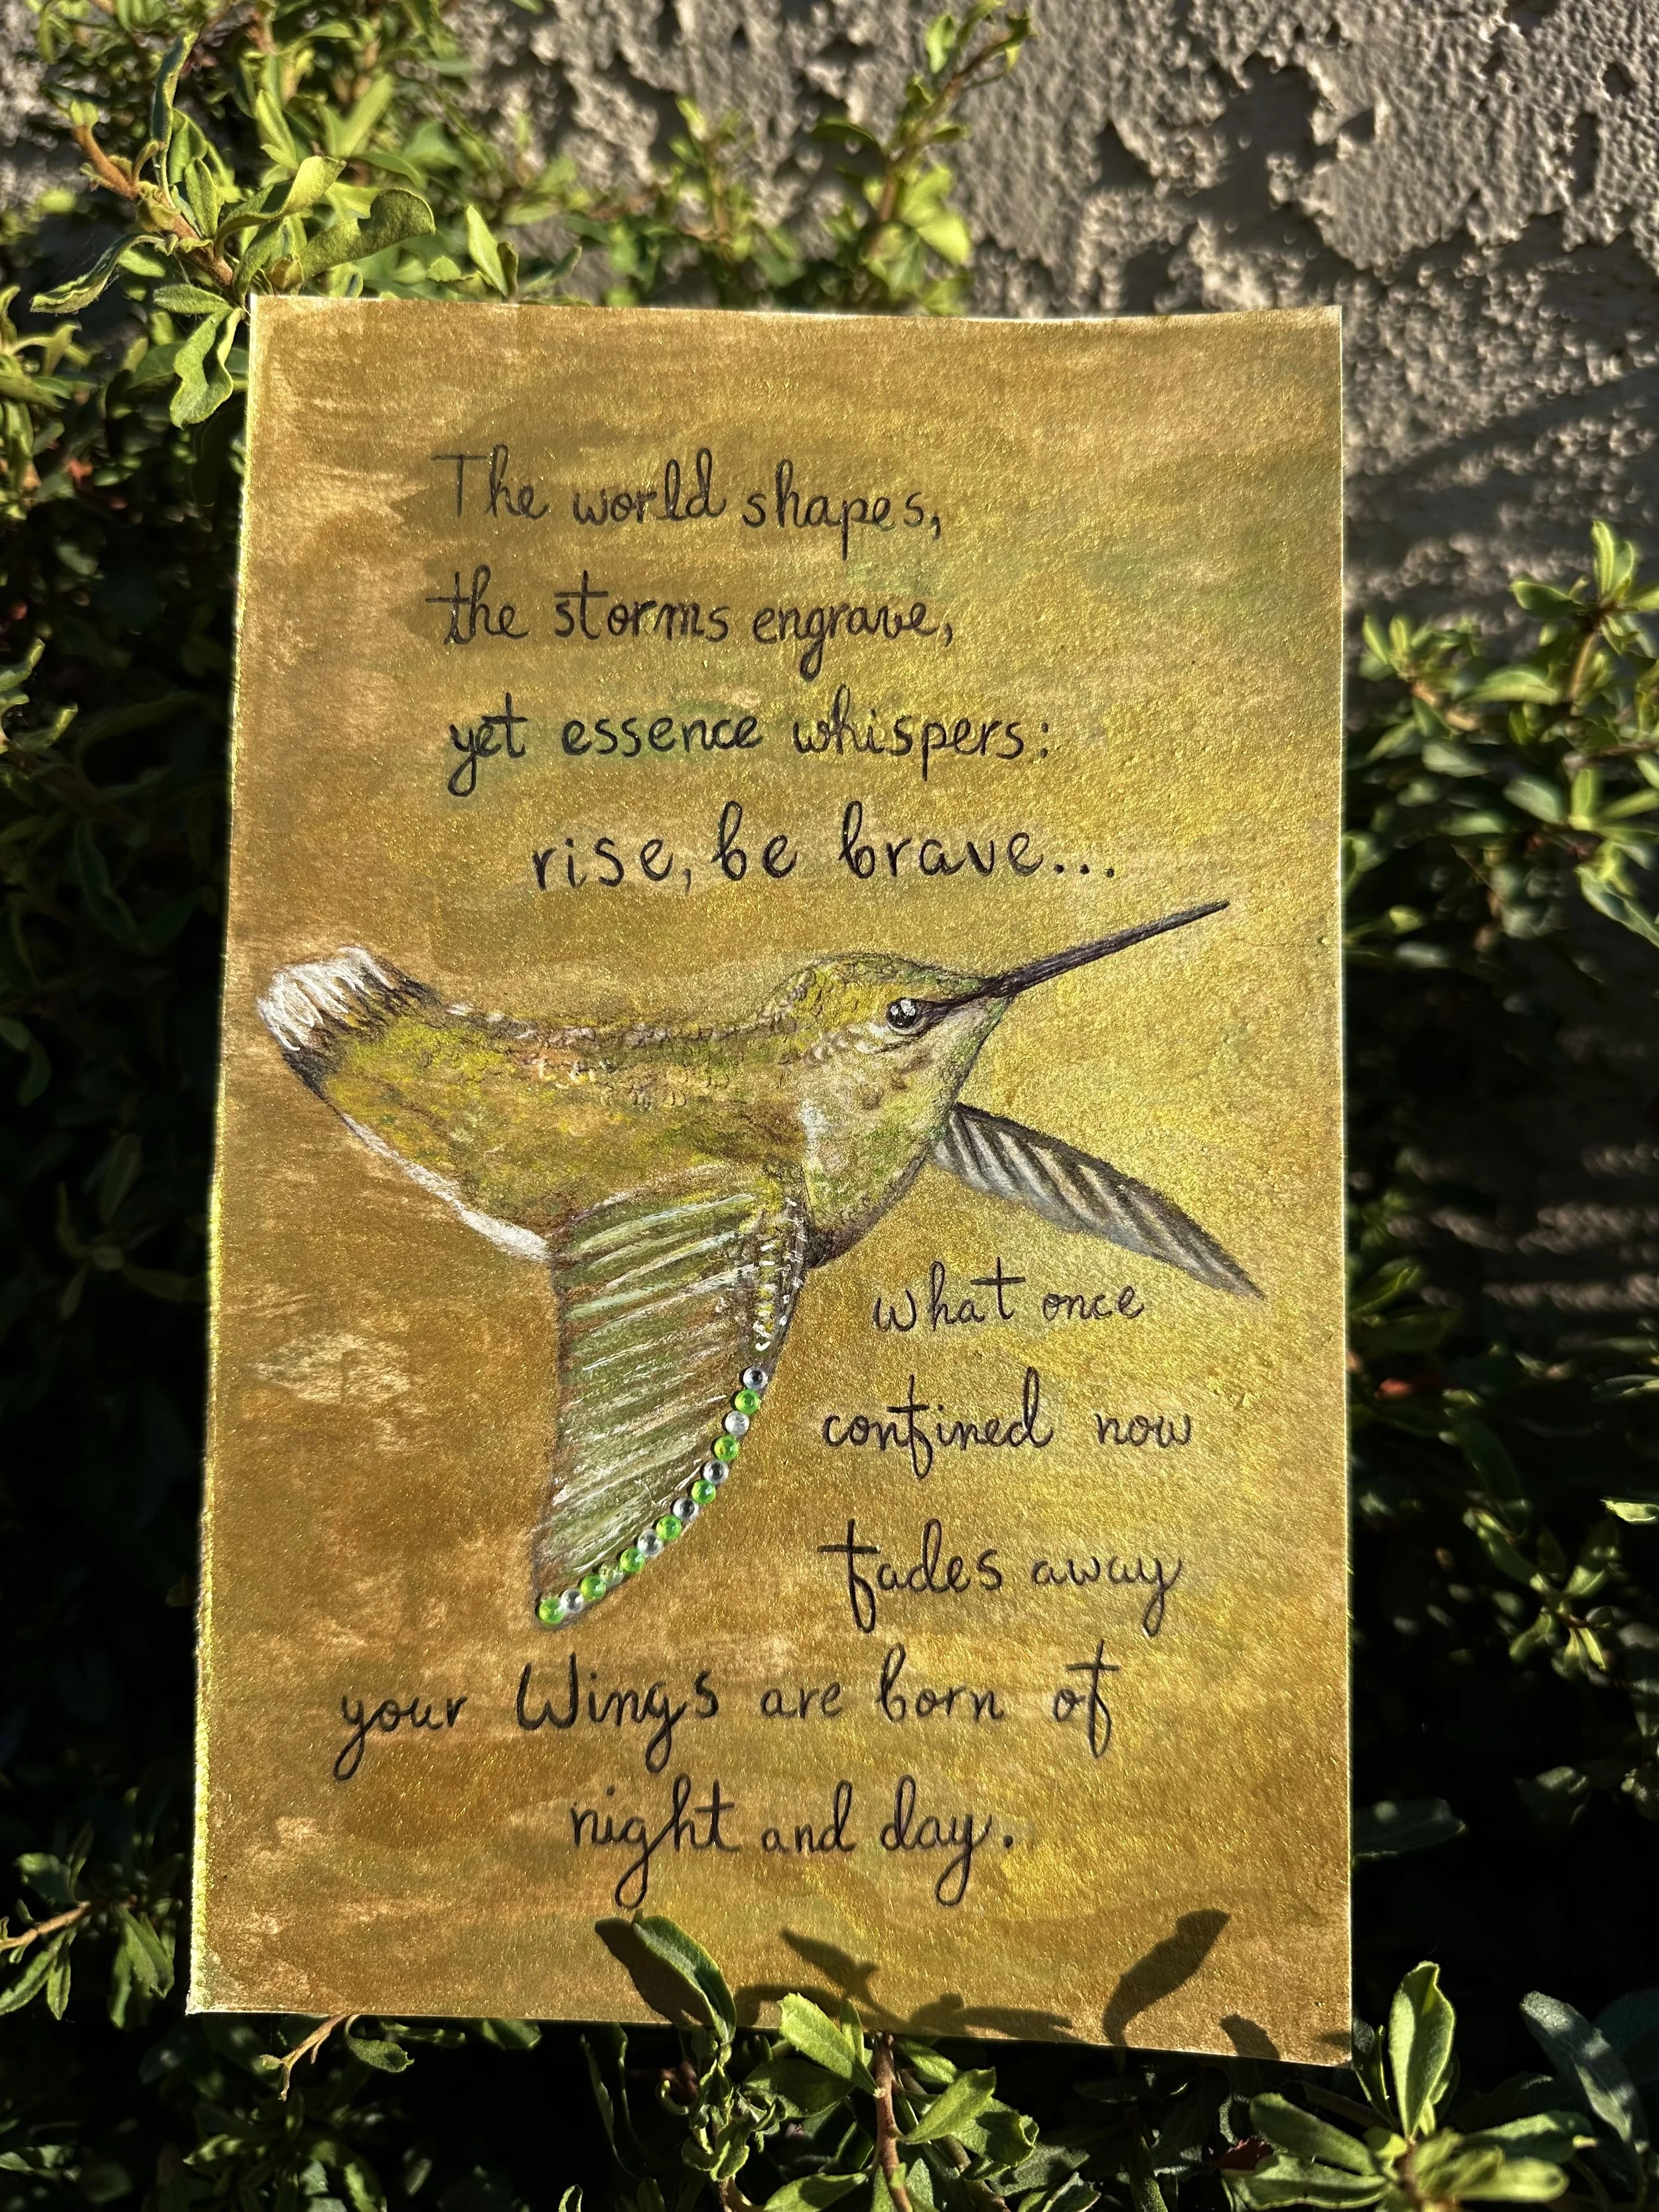 The world shapes,
the storms engrave,
yet essence whispers:
rise, be brave...
what once
confined now
fades away
your Wings are born of
night and day.